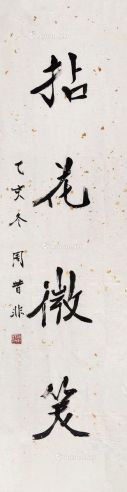 拈花微笑
乙亥冬 周昔非